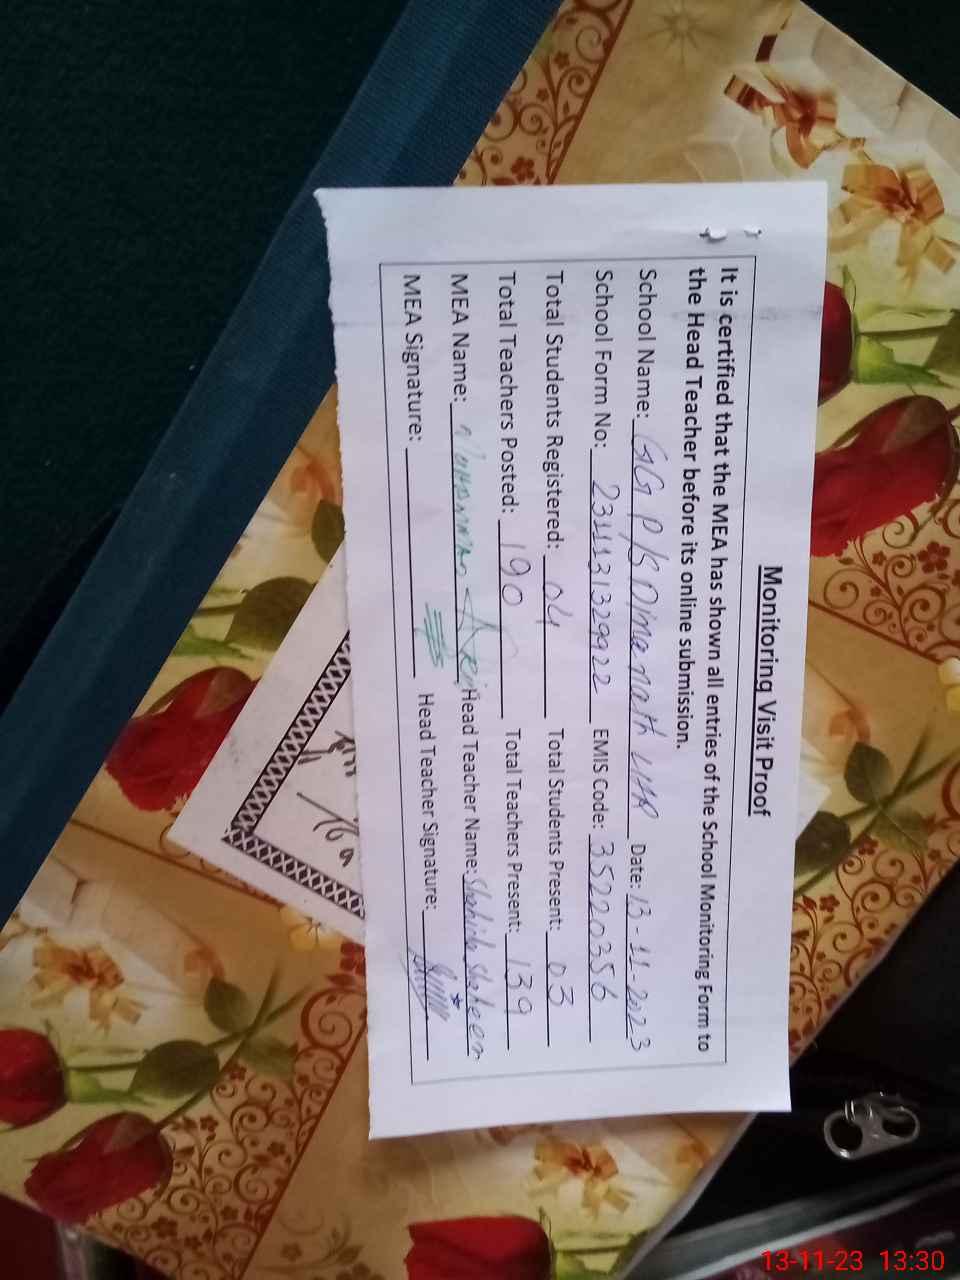 Monitoring Visit Proof
It is certified that the MEA has shown all entries of the School Monitoring Form to
the Head Teacher before its online submission.
School Name: GGP/S Dinanath Date: 13-11-2023
School Form No: 2311131329922 EMIS Code: 35220356
Total Students Registered: 04 Total Students Present: 03
Total Teachers Posted: 190 Total Teachers Present: 139
MEA Name: Head Teacher Name: Shahida Shaheen
MEA Signature: Head Teacher Signature:
13-11-23 13:30